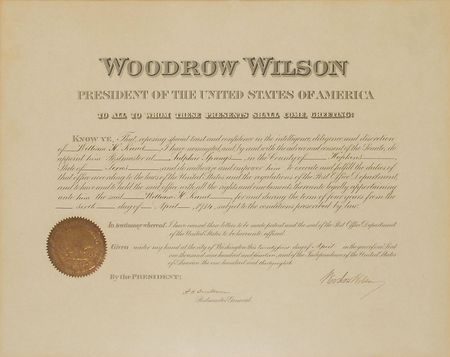 WOODROW WILSON
PRESIDENT OF THE UNITED STATES OF AMERICA
TO ALL TO WHOM THESE PRESENTS SHALL COME, GREETING:
KNOW YE, That reposing special trust and confidence in the intelligence, diligence and discretion
of William H. I have nominated, and by and with the advice and consent of the Senate, do
appoint him Postmaster at Sulphur Springs, in the County of Hopkins,
State of Texas and do authorize and empower him to execute and fulfill the duties of
that office according to the laws of the United States and the regulations of the Post Office Department,
and to have and to hold the said office with all the rights and emoluments thereunto legally appertaining
unto him the said William H. for and during the term of four years from the
sixth day of April, 1914, subject to the conditions prescribed by law.
In testimony whereof, I have caused these letters to be made patent and the seal of the Post Office Department
of the United States to be hereunto affixed.
Given under my hand at the city of Washington this day of April in the year of our Lord
one thousand nine hundred and fourteen, and of the Independence of the United States
of America the one hundred and thirty-eighth.
By the PRESIDENT:
Woodrow Wilson
Postmaster General